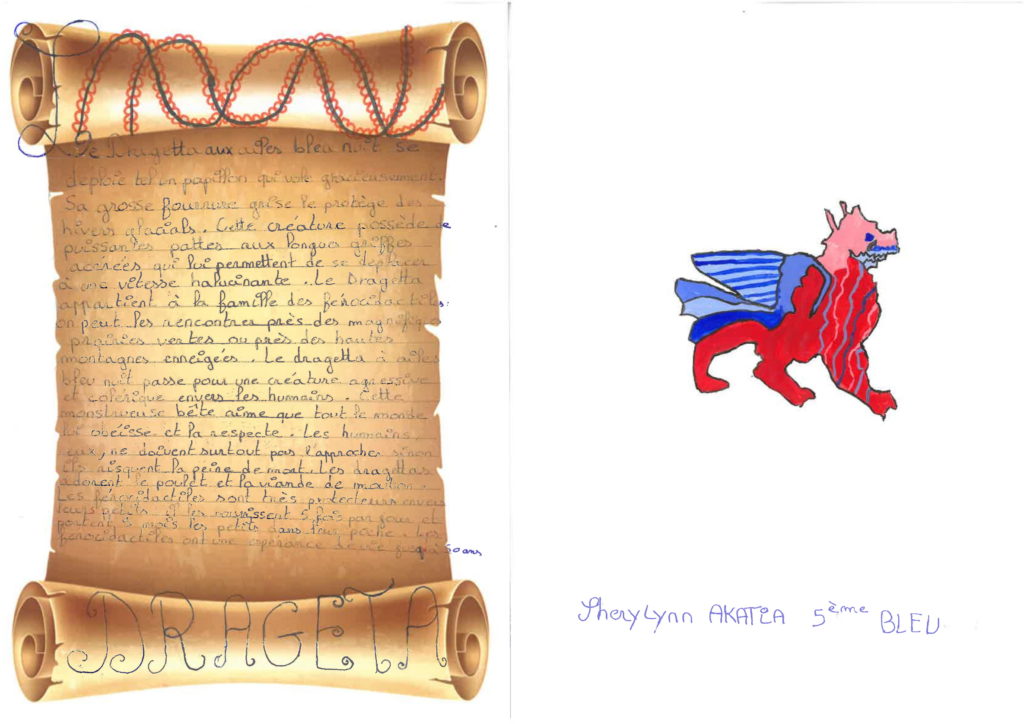 Le Dragetta aux ailes bleu nuit se
déploie tel un papillon qui vole gracieusement.
Sa grosse fourrure grise le protège des
hivers glacials. Cette créature possède de
puissantes pattes aux longues griffes
acérées qui lui permettent de se déplacer
à une vitesse halucinante. Le Dragetta
appartient à la famille des ferocidactiles:
on peut les rencontrer près des magnifiques
prairies vertes ou près des hautes
montagnes enneigées. Le dragetta à ailes
bleu nuit passe pour une créature agressive
et colérique envers les humains. Cette
monstrueuse bête aime que tout le monde
lui obéisse et la respecte. Les humains,
eux, ne doivent surtout pas l'approcher sinon
ils risquent la peine de mort. Les dragettas
adorent le poulet et la viande de mouton.
Les férocidactiles sont très protecteurs envers
leurs petits. Il les nourissent 5 fois par jour et
portent mois les petits dans leur poche. Les
ferocidactiles ont une espérance de vie jusqu'à 50 ans
DRAGETA
SherylLynn AKATZA 5ème BLEU